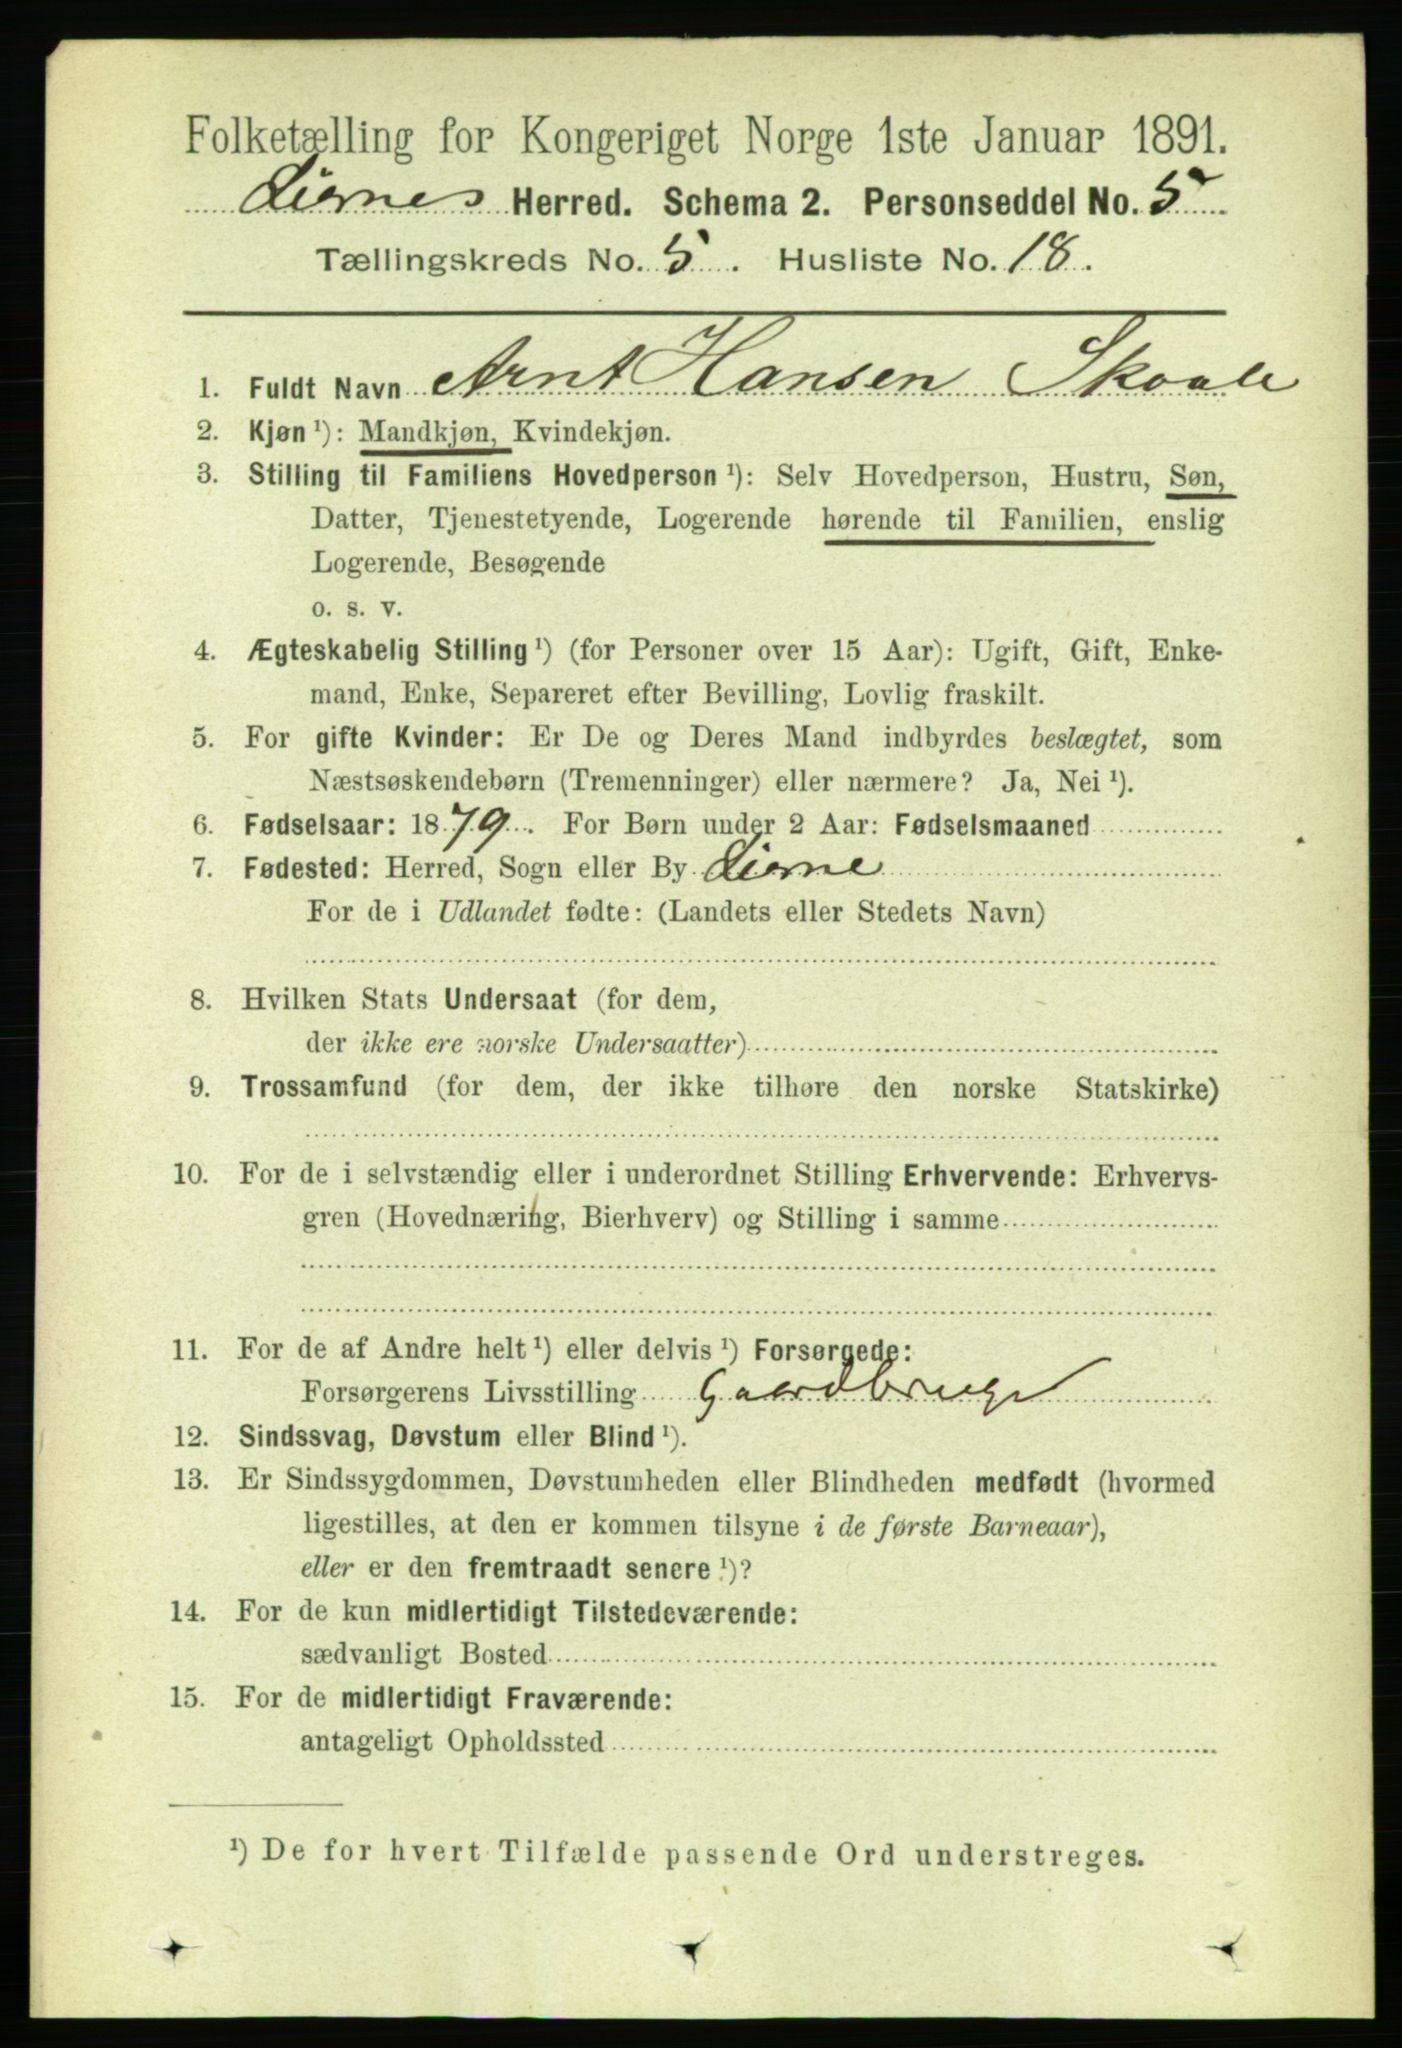 Folketælling for Kongeriget Norge 1ste Januar 1891.
Liernes Herred. Schema 2. Personseddel No. 5
Tællingskreds No. 5. Husliste No. 18.
1. Fuldt Navn Arnt Hansen Skaale
2. Kjøn ¹): Mandkjøn, Kvindekjøn.
3. Stilling til Familiens Hovedperson ¹): Selv Hovedperson, Hustru, Søn,
Datter, Tjenestetyende, Logerende hørende til Familien, enslig
Logerende, Besøgende
o. s. v.
4. Ægteskabelig Stilling ¹) (for Personer over 15 Aar): Ugift, Gift, Enke-
mand, Enke, Separeret efter Bevilling, Lovlig fraskilt.
5. For gifte Kvinder: Er De og Deres Mand indbyrdes beslægtet, som
Næstsøskendebørn (Tremenninger) eller nærmere? Ja, Nei ¹).
6. Fødselsaar: 1879. For Børn under 2 Aar: Fødselsmaaned
7. Fødested: Herred, Sogn eller By Lierne
For de i Udlandet fødte: (Landets eller Stedets Navn)
8. Hvilken Stats Undersaat (for dem,
der ikke ere norske Undersaatter)
9. Trossamfund (for dem, der ikke tilhøre den norske Statskirke)
10. For de i selvstændig eller i underordnet Stilling Erhvervende: Erhvervs-
gren (Hovednæring, Bierhverv) og Stilling i samme
11. For de af Andre helt ¹) eller delvis ¹) Forsørgede:
Forsørgerens Livsstilling Gaardbruger
12. Sindssvag, Døvstum eller Blind ¹).
13. Er Sindssygdommen, Døvstumheden eller Blindheden medfødt (hvormed
ligestilles, at den er kommen tilsyne i de første Barneaar),
eller er den fremtraadt senere ¹)?
14. For de kun midlertidigt Tilstedeværende:
sædvanligt Bosted
15. For de midlertidigt Fraværende:
antageligt Opholdssted
¹) De for hvert Tilfælde passende Ord understreges.